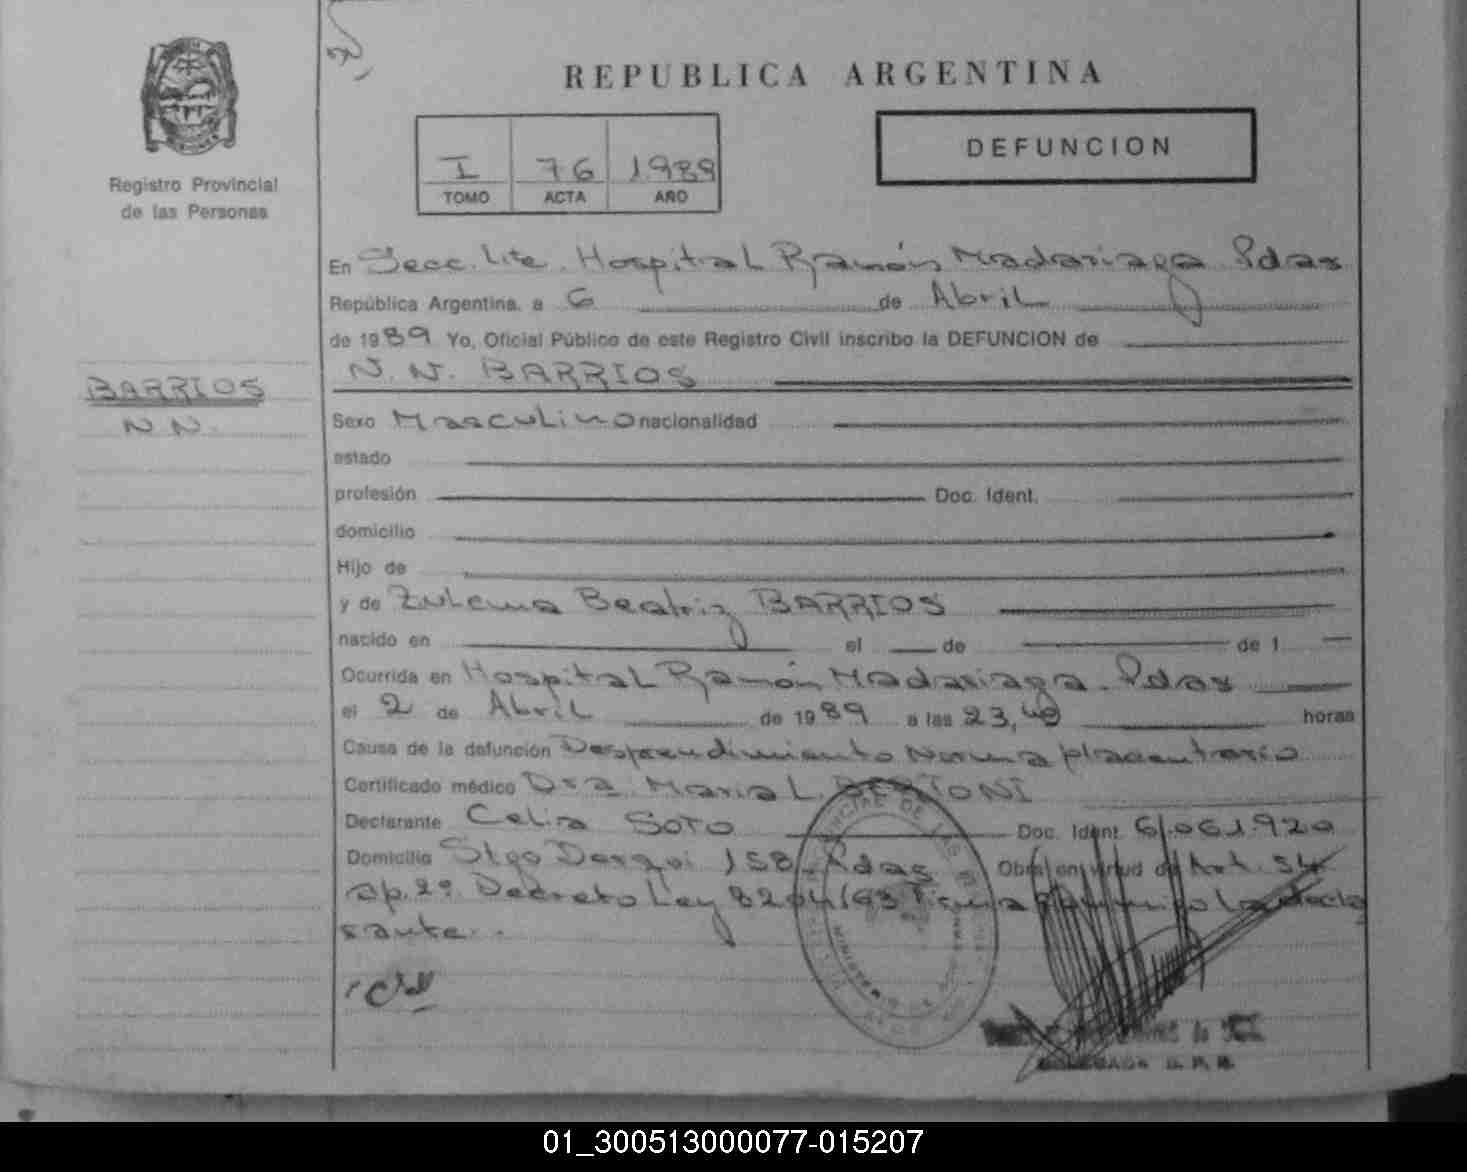 REPUBLICA ARGENTINA
DEFUNCION
I 76 1989
TOMO ACTA AÑO
Registro Provincial
de las Personas
En Secc. Lte. Hospital Ramón Madariaga Pdas
República Argentina, a 6 de Abril
de 1989 Yo, Oficial Público de este Registro Civil inscribo la DEFUNCION de
N. N. BARRIOS
BARRIOS
N N.
Sexo Masculino nacionalidad
estado
profesión Doc. Ident.
domicilio
Hijo de
y de Zulema Beatriz BARRIOS
nacido en el de de 1
Ocurrida en Hospital Ramón Madariaga. Pdas
el 2 de Abril de 1989 a las 23,40 horas
Causa de la defunción Desprendimiento Norma placentario
Certificado médico Dra. Maria L. BERTONI
Declarante Celia SOTO Doc. Ident. 6.061.920
Domicilio Stgo Derqui 158 Pdas Obra en virtud de Art. 54
ap. 2º. Decreto Ley 8204/63 Firma conmigo la decla
rante.
01_300513000077-015207